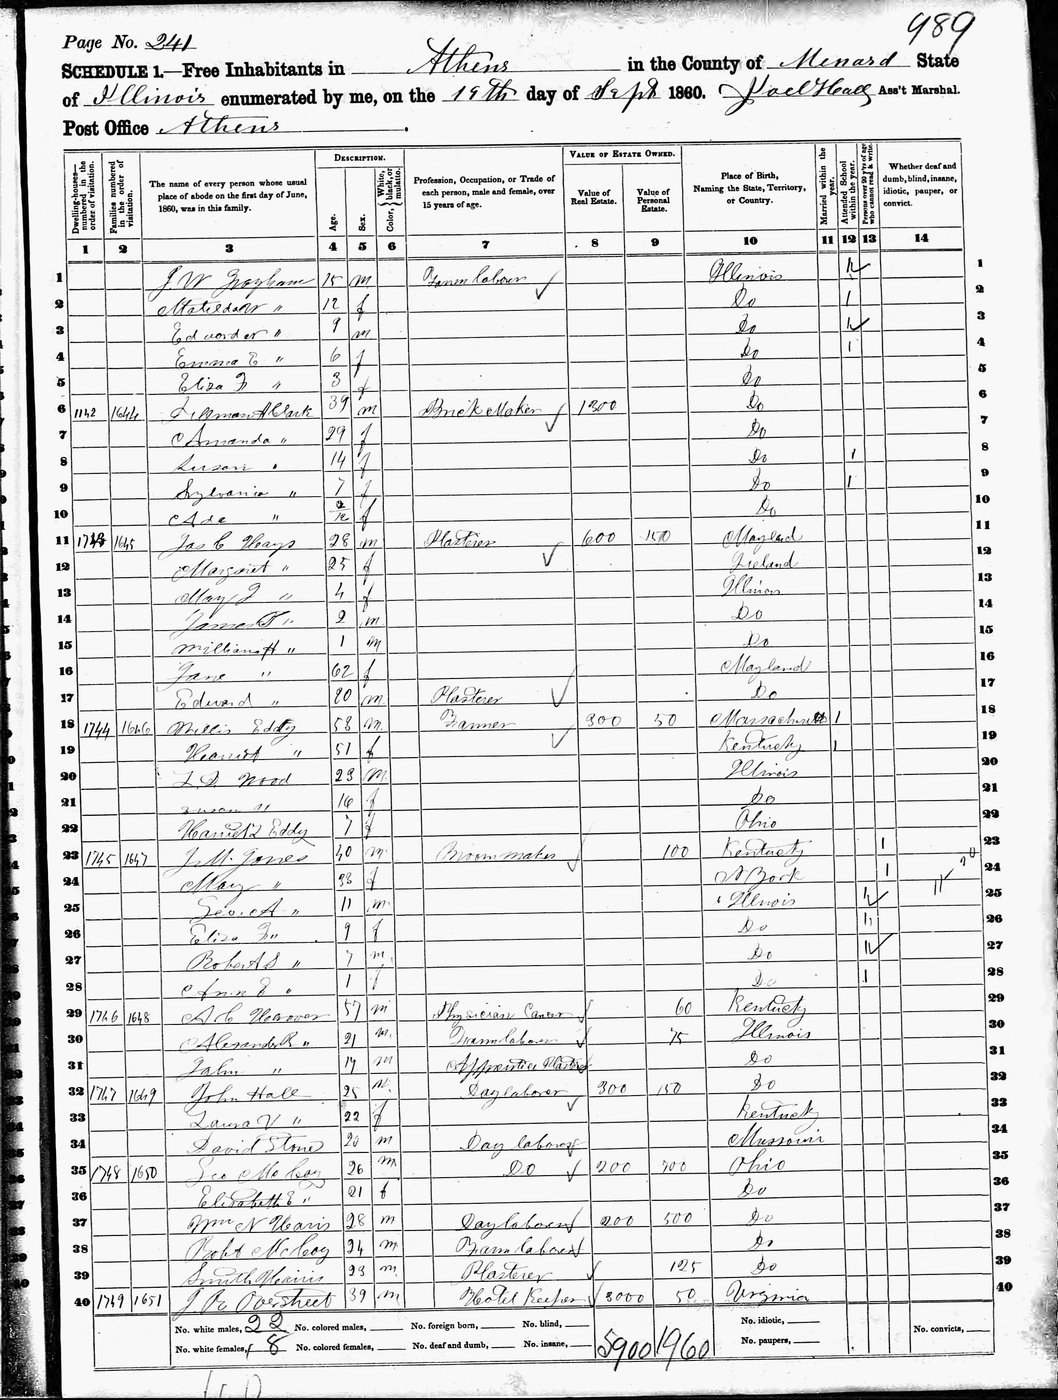 989
Page No. 241
SCHEDULE 1.—Free Inhabitants in Athens in the County of Menard State
of Illinois enumerated by me, on the 19th day of Sept 1860. Joel Hall Ass't Marshal.
Post Office Athens.
Dwelling-houses—numbered in the order of visitation.
Families numbered in the order of visitation.
The name of every person whose usual place of abode on the first day of June, 1860, was in this family.
DESCRIPTION.
Age.
Sex.
Color, White, black, or mulatto.
Profession, Occupation, or Trade of each person, male and female, over 15 years of age.
VALUE OF ESTATE OWNED.
Value of Real Estate.
Value of Personal Estate.
Place of Birth, Naming the State, Territory, or Country.
Married within the year.
Attended School within the year.
Persons over 20 y'rs of age who cannot read & write.
Whether deaf and dumb, blind, insane, idiotic, pauper, or convict.
1 2 3 4 5 6 7 8 9 10 11 12 13 14
1 J W 15 m Farm labour Illinois 1
2 Matilda " 12 f Do 1 2
3 " 9 m Do 3
4 Emma E " 6 f Do 1 4
5 Eliza F " 3 f Do 5
6 1644 Clark 39 m Brick Maker 1200 Do 6
7 Amanda " 29 f Do 7
8 Susan " 14 f Do 1 8
9 Sylvania " 7 f Do 1 9
10 Ada " f Do 10
11 1645 Jas C Hays 28 m Plasterer 600 150 Mayland 11
12 Margaret " 25 f Ireland 12
13 Mary " 4 f Illinois 13
14 James " 2 m Do 14
15 William H " 1 m Do 15
16 Jane " 62 f Mayland 16
17 Edward " 80 m Plasterer Do 17
18 1744 1646 Willis Eddy 58 m 300 50 Massachusetts 1 18
19 " 51 f Kentucky 1 19
20 Wood 23 m Illinois 20
21 Susan " 16 f Do 21
22 Harriet Eddy 7 f Ohio 22
23 1745 1647 J. M. Jones 40 m Broommaker 100 Kentucky 1 23
24 Mary " 33 f N York 1 24
25 Geo. A " 11 m Illinois 25
26 Eliza F " 9 f Do 26
27 Robert S " 7 m Do 27
28 Ann E " 1 f Do 1 28
29 1746 1648 A C 57 m Physician Cancer 60 Kentucky 29
30 Alexander " 21 m Farm laborer 75 Illinois 30
31 John " 17 m Apprentice Plasterer Do 31
32 1747 1649 John Hall 25 m Day laborer 300 150 Do 32
33 Laura V " 22 f Kentucky 33
34 David Stone 20 m Day laborer Missouri 34
35 1748 1650 Geo McCoy 26 m Do 200 700 Ohio 35
36 Elizabeth E " 21 f Do 36
37 Wm N Harris 28 m Day laborer 200 500 Do 37
38 Robt McCoy 24 m Farm laborer Do 38
39 Smith Harris 23 m Plasterer 125 Do 39
40 1749 1651 Overstreet 39 m Hotel Keeper 3000 50 Virginia 40
No. white males, 22 No. colored males, No. foreign born, No. blind, 5900 1960 No. idiotic,
No. white females, 18 No. colored females, No. deaf and dumb, No. insane, No. paupers, No. convicts,